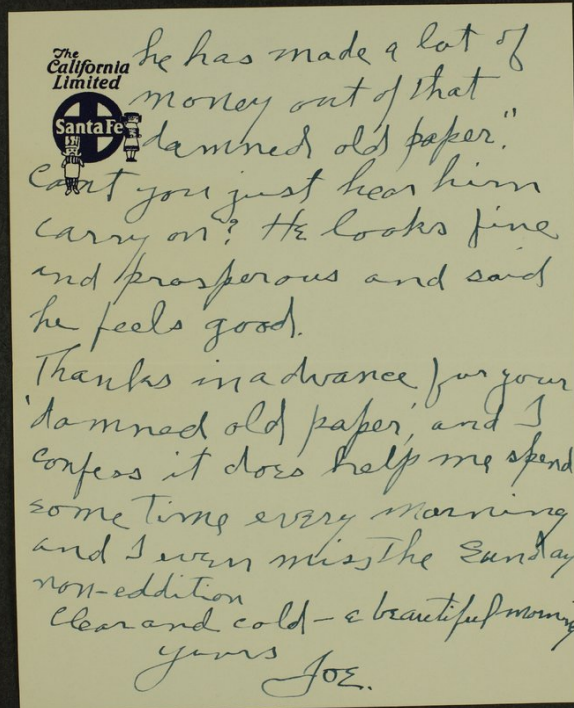 The
California
Limited
Santa Fe
he has made a lot of
money out of that
damned old paper."
Can't you just hear him
carry on? He looks fine
and prosperous and said
he feels good.
Thanks in advance for your
'damned old paper', and I
confess it does help me spend
some time every morning
and I even miss the Sunday
non-eddition
Clear and cold - a beautiful morning
yours
Joe.